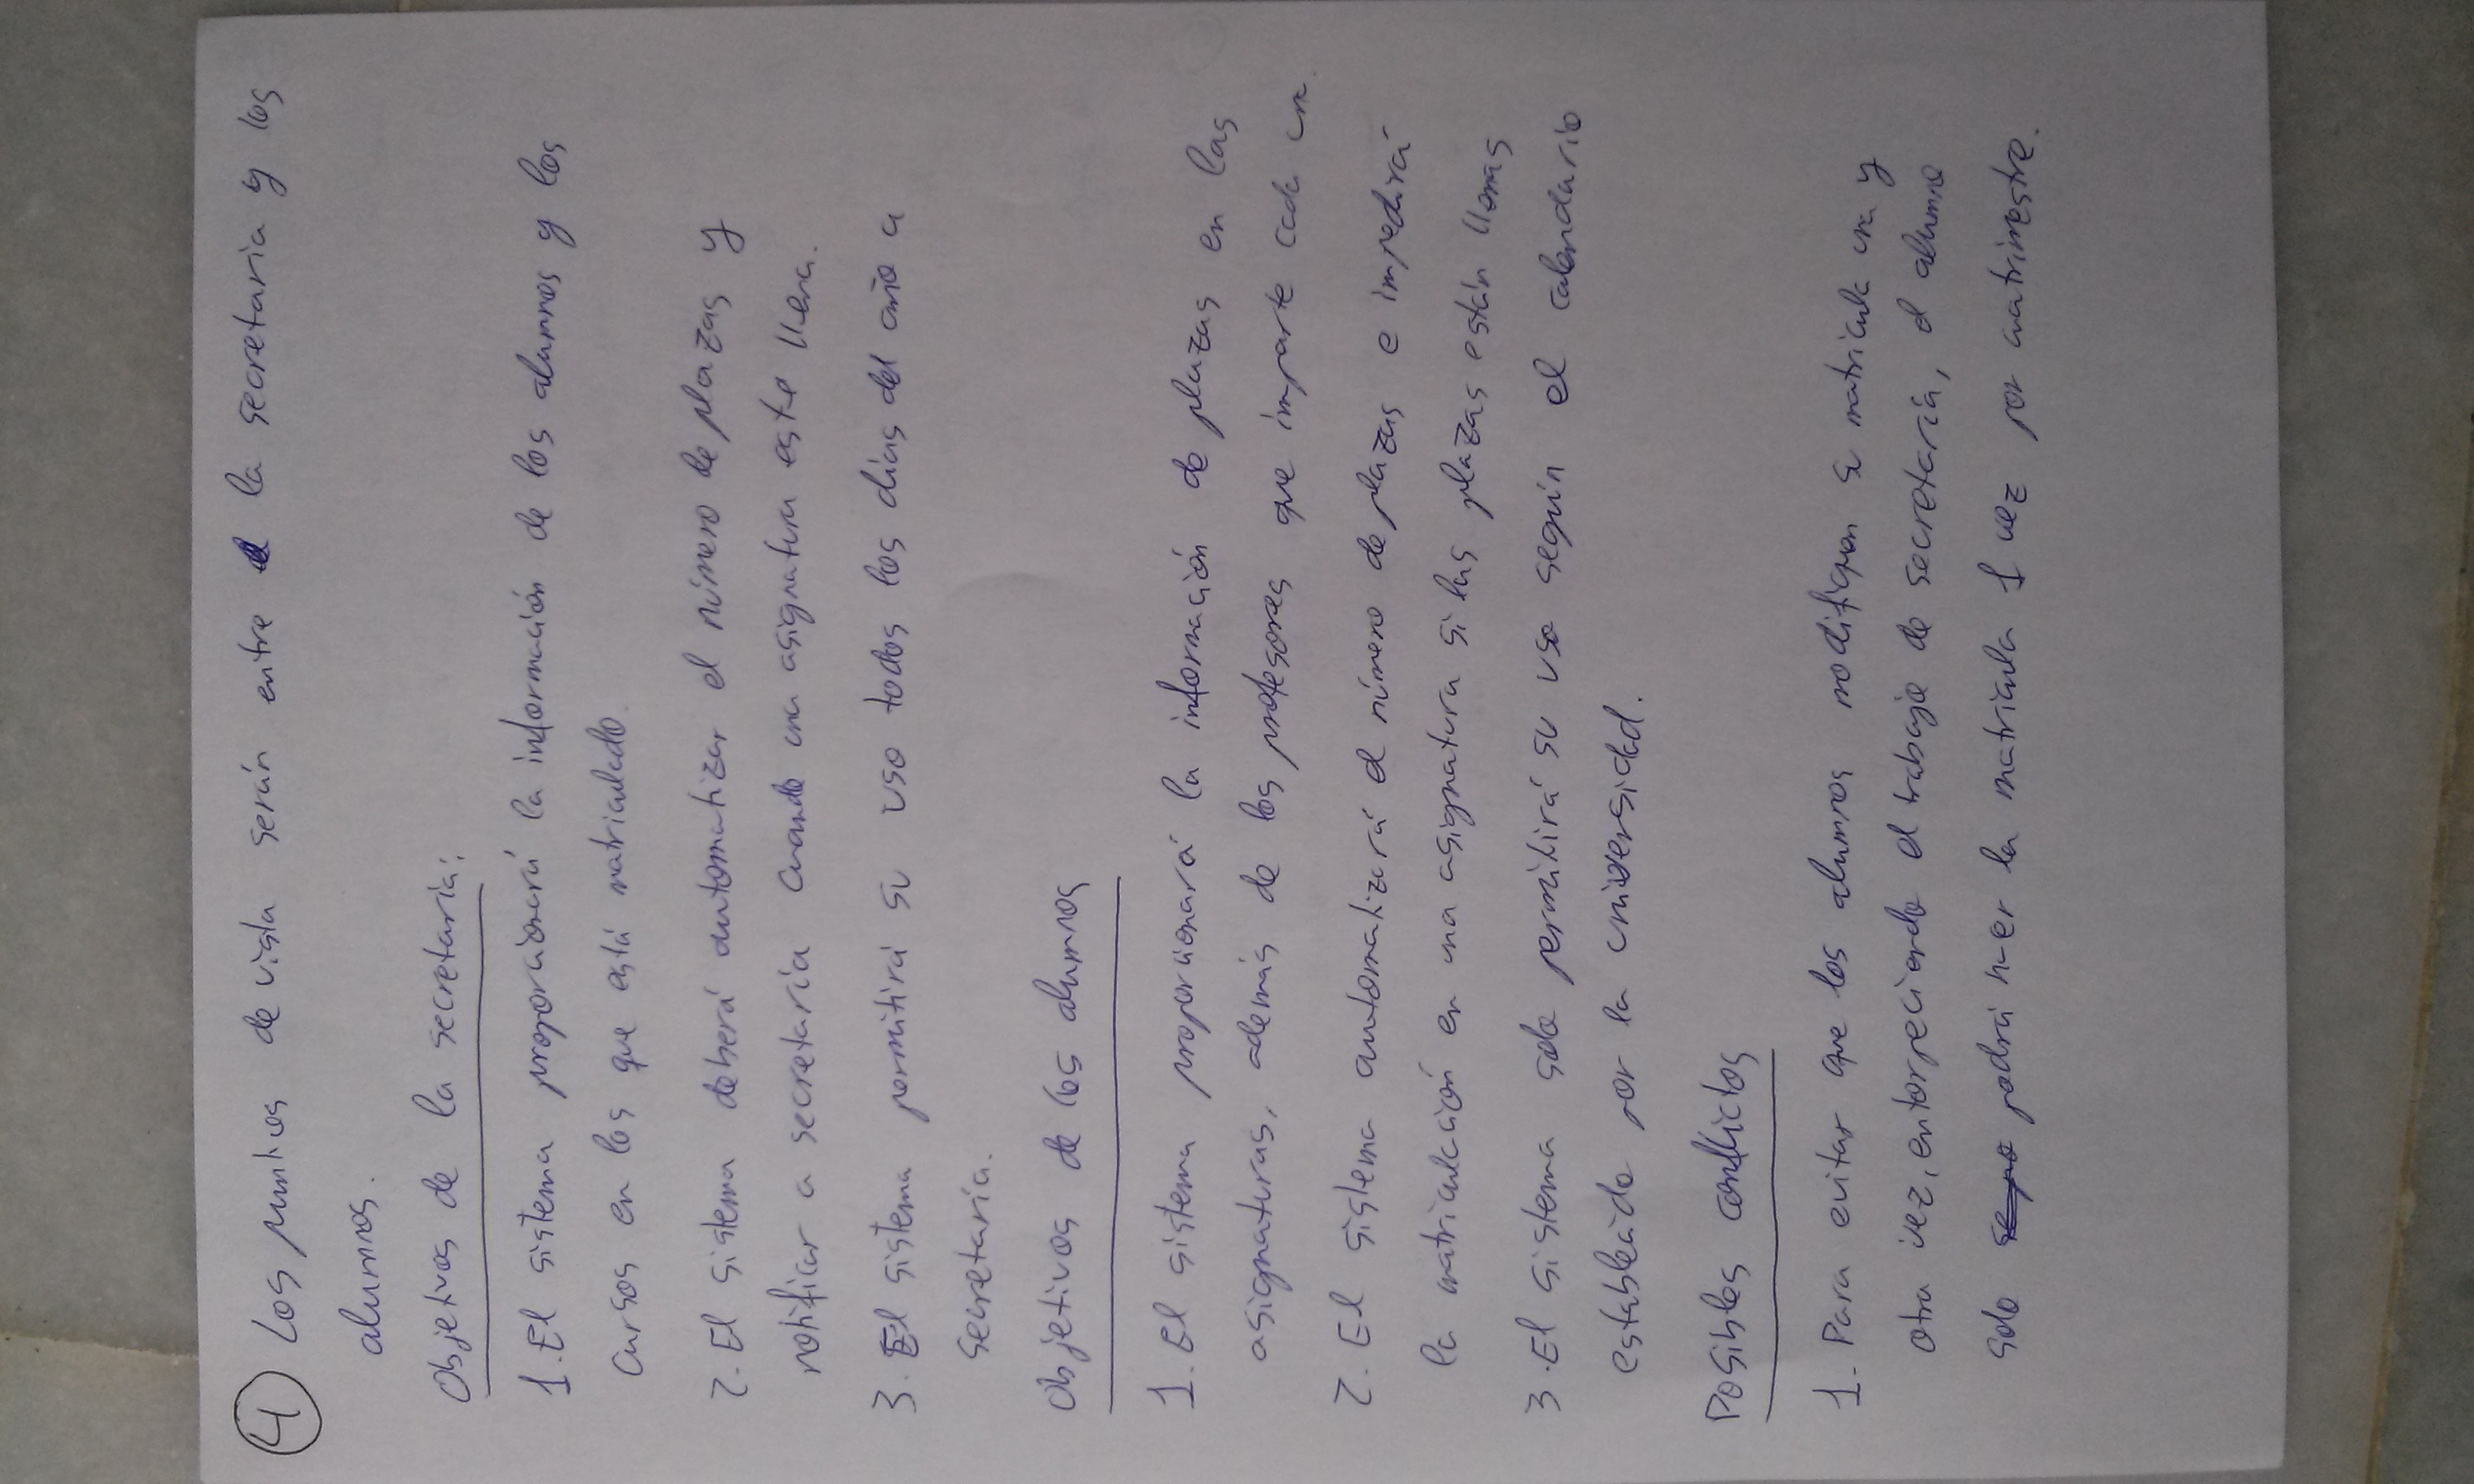 4 Los puntos de vista serán entre la secretaria y los
alumnos.
Objetivos de la secretaria:
1. El sistema proporcionará la información de los alumnos y los
cursos en los que está matriculado.
2. El sistema deberá automatizar el número de plazas y
notificar a secretaría cuando una asignatura este llena.
3. El sistema permitirá su uso todos los días del año a
secretaría.
Objetivos de los alumnos
1. El sistema proporcionará la información de plazas en las
asignaturas, además de los profesores que imparte cada una.
2. El sistema automatizará el número de plazas e impedirá
la matriculación en una asignatura si las plazas están llenas
3. El sistema solo permitirá su uso según el calendario
establecido por la universidad.
Posibles conflictos
1. Para evitar que los alumnos modifiquen su matricula una y
otra vez, entorpeciendo el trabajo de secretaría, el alumno
solo podrá la matricula 1 vez por cuatrimestre.